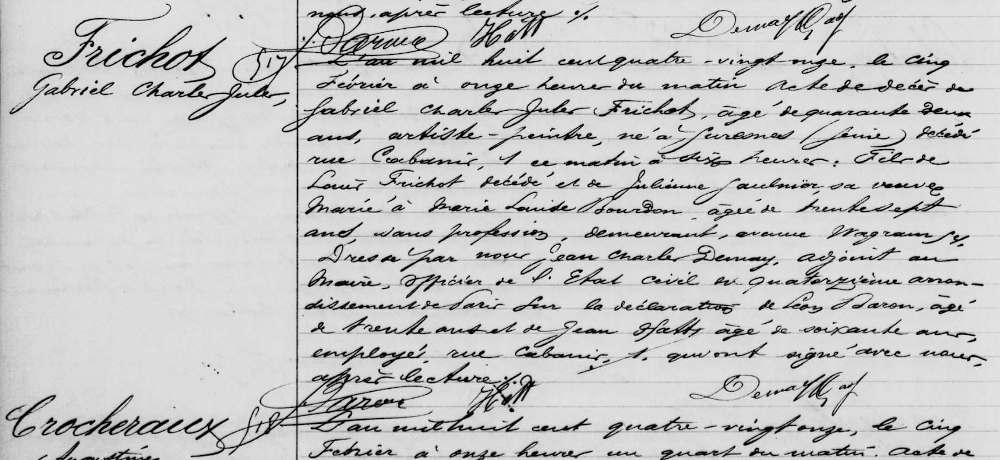 nous, après lecture ./.
Baron Hatt Demay adj
Frichot
517
Gabriel Charles Jules,
L'an mil huit cent quatre-vingt onze, le cinq
Février à onze heures du matin Acte de décès de
Gabriel Charles Jules Frichot, âgé de quarante deux
ans, artiste-peintre, né à Suresnes (Seine) décédé
rue Cabanis, 1 ce matin à heures: Fils de
Louis Frichot décédé et de Julienne Saulnier, sa veuve,
Marié à Marie Louise Bourdon, âgée de trente sept
ans, sans profession, demeurant, avenue Wagram
Dressé par nous Jean Charles Demay, adjoint au
Maire, officier de l'Etat civil du quatorzième arron-
dissement de Paris sur la déclaration de Léon Baron, âgé
de trente ans et de Jean Hatt âgé de soixante ans,
employés, rue Cabanis, 1. qui ont signé avec nous,
après lecture ./.
Baron Hatt Demay adj
Crocheraux
518
Augustine
L'an mil huit cent quatre-vingt onze, le cinq
Février à onze heures un quart du matin. Acte de